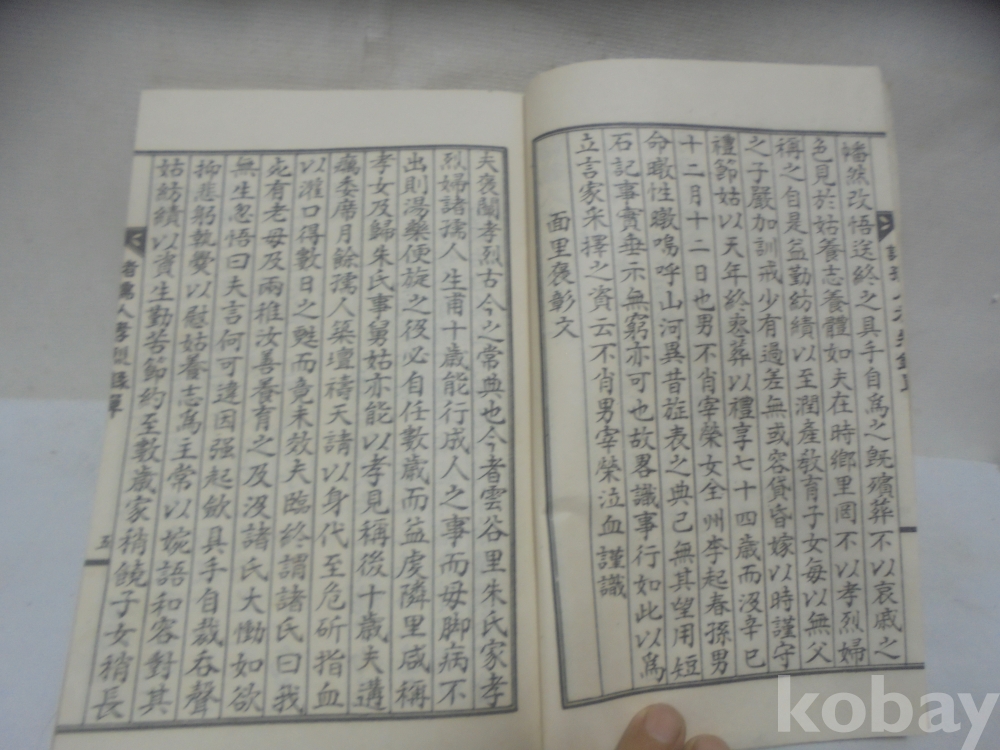 幡然改悟送終之具手自爲之旣殯葬不以哀戚之
色見於姑養志養體如夫在時鄉里罔不以孝烈婦
稱之自是益勤紡績以至潤產敎育子女每以無父
之子嚴加訓戒少有過差無或容貸昏嫁以時謹守
禮節姑以天年終喪葬以禮享七十四歲而沒辛巳
十二月十二日也男不肖宰榮女全州李起春孫男
命暾性暾嗚呼山河異昔旌表之典已無其望用短
石記事實垂示無窮亦可也故畧識事行如此以爲
立言家采擇之資云不肖男宰榮泣血謹識
面里褒彰文
夫褒闡孝烈古今之常典也今者雲谷里朱氏家孝
烈婦諸孺人生甫十歲能行成人之事而母脚病不
出則湯藥便旋之役必自任數歲而益虔隣里咸稱
孝女及歸朱氏事舅姑亦能以孝見稱後十歲夫遘
癘委席月餘孺人築壇禱天請以身代至危斫指血
以灌口得數日之甦而竟未效夫臨終謂諸氏曰我
死有老母及兩稚汝善養育之及沒諸氏大慟如欲
無生忽悟曰夫言何可違因强起斂具手自裁吞聲
抑悲躬執爨以慰姑養志爲主常以婉語和容對其
姑紡績以資生勤苦節約至數歲家稍饒子女稍長
諸孺人孝烈錄單
五
kobay